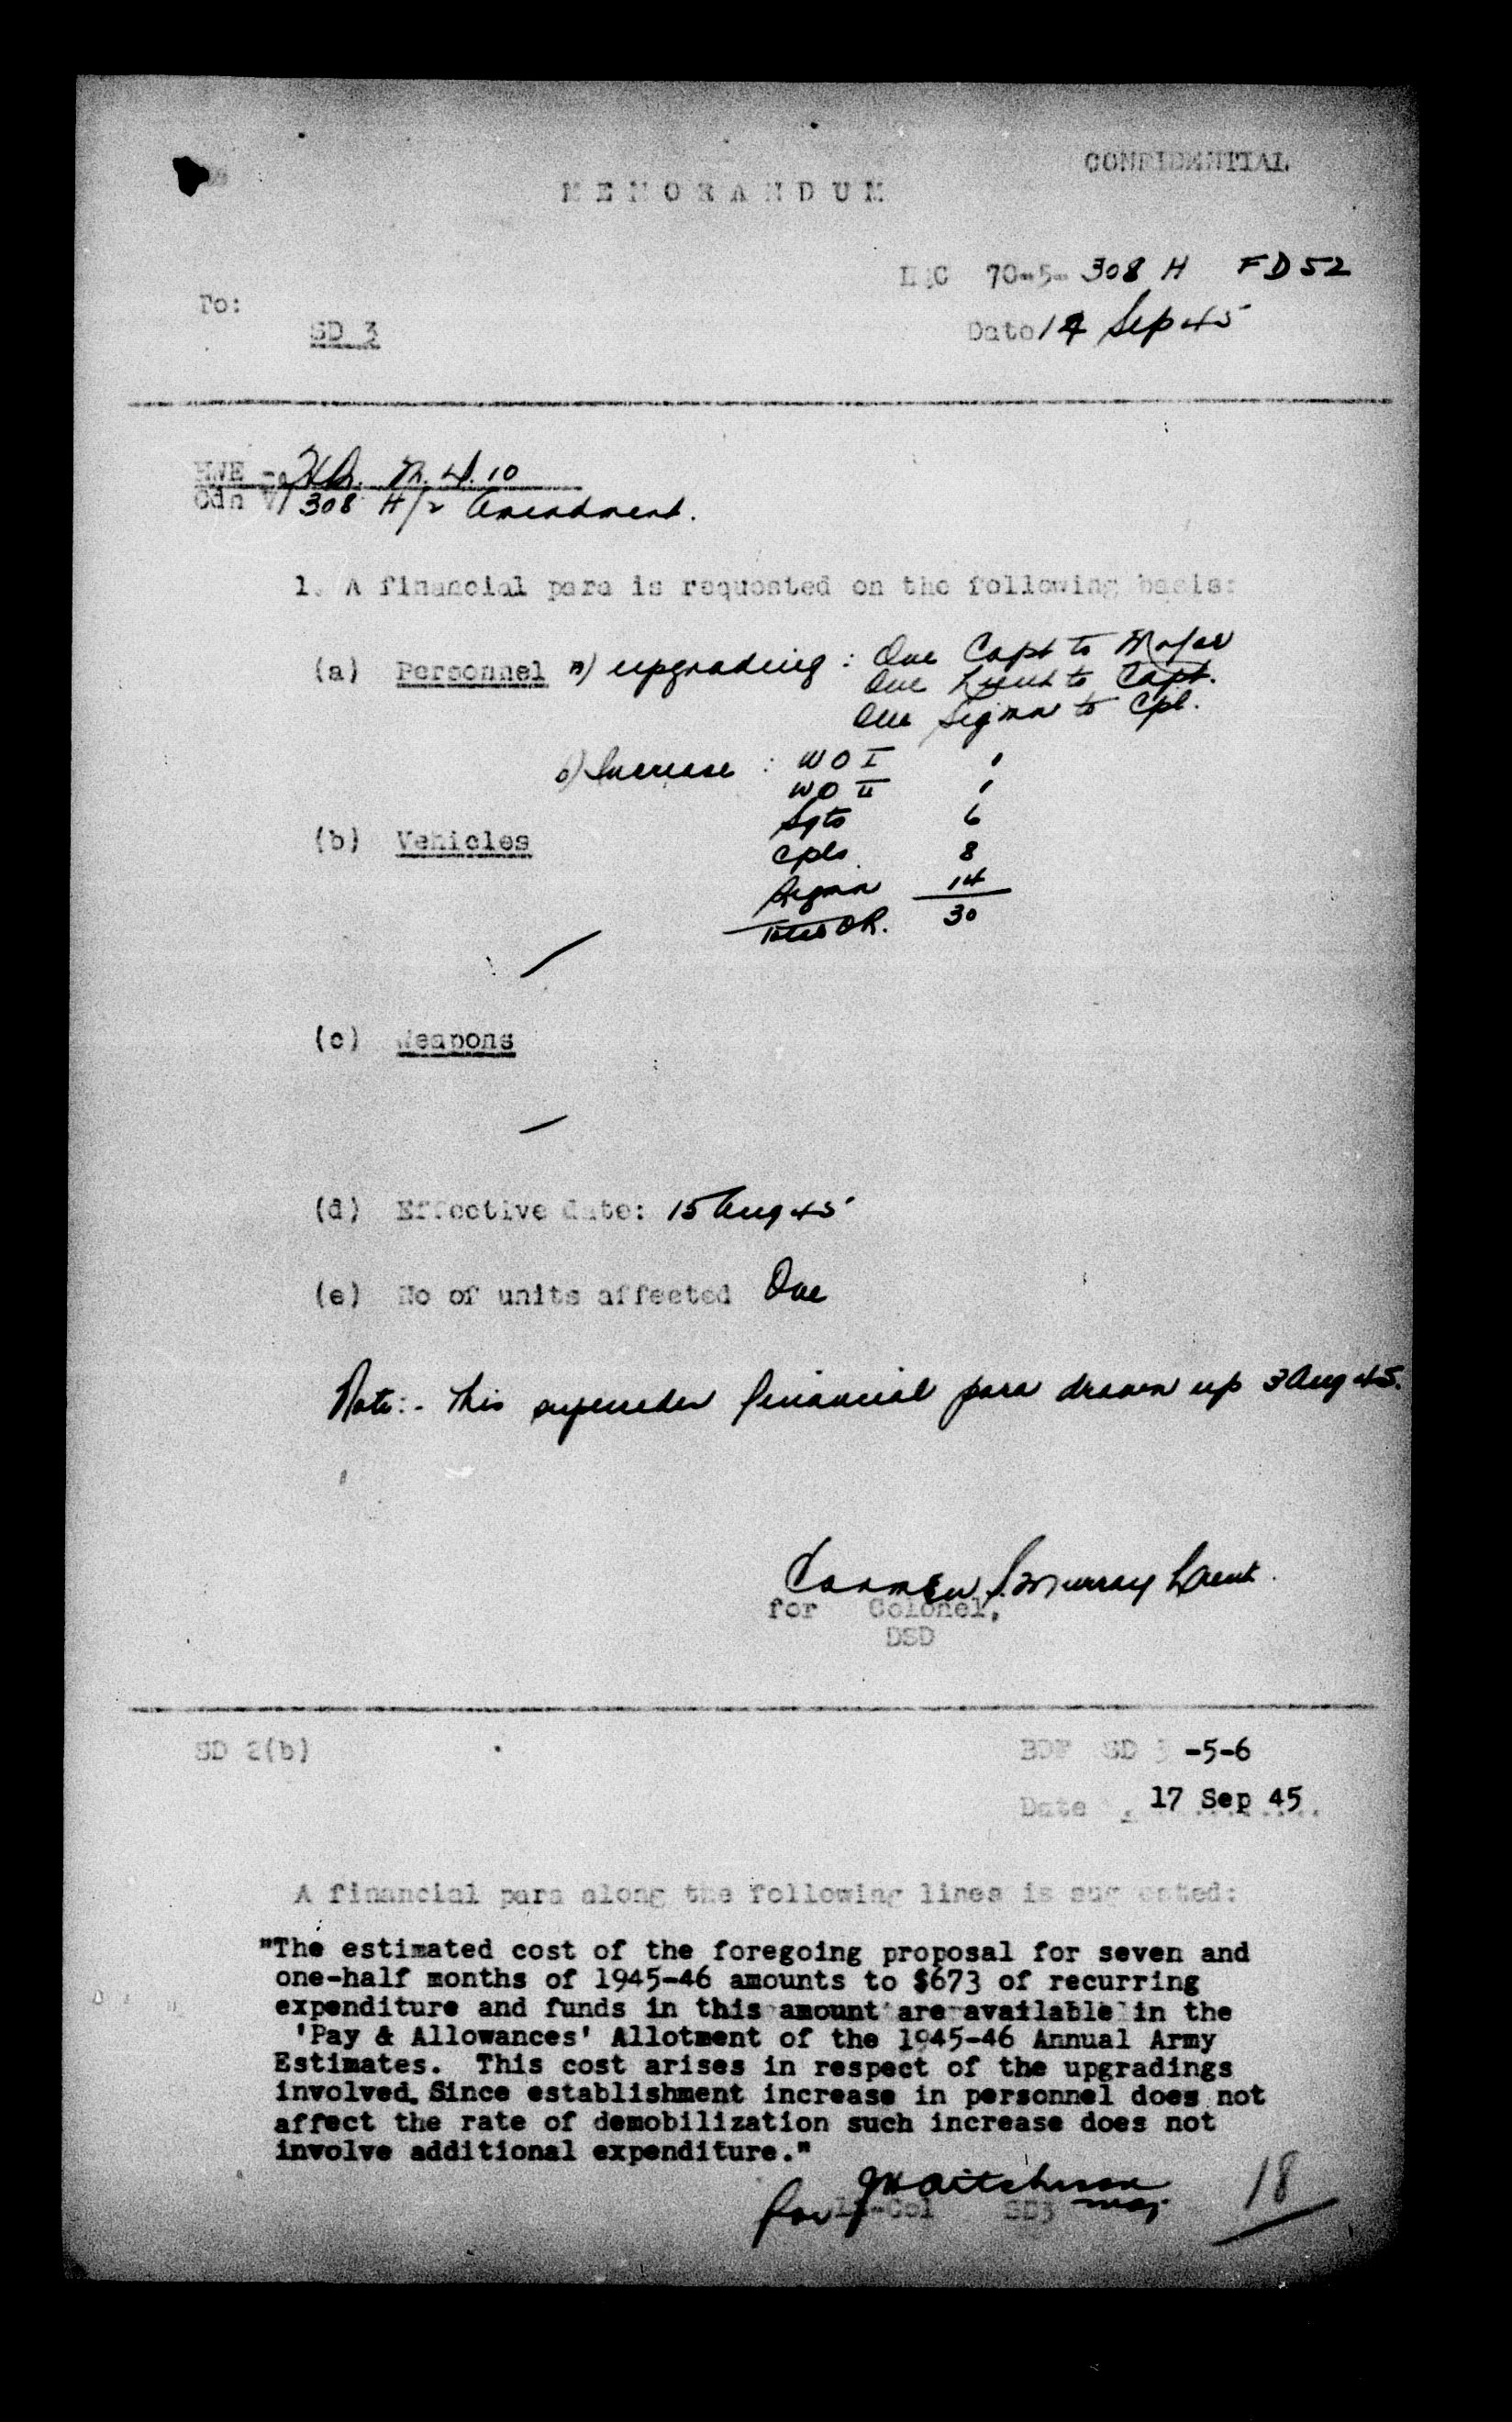 CONFIDENTIAL
MEMORANDUM
HQC 70-5- 308 H FD 52
To:
SD 3
Date 14 Sep 45
HWE - M.D. 10
Cdn V/ 308 H/2 Amendment.
1. A financial para is requested on the following basis:
(a) Personnel a) upgrading : One Capt to Major
One Lieut to Capt.
One Sigmn to Cpl.
b) Increase : WO I 1
WO II 1
Sgts 6
(b) Vehicles
Cpls 8
Sigmn 14
Total OR. 30
(c) Weapons
(d) Effective date: 15 Aug 45
(e) No of units affected One
Note:- This supersedes financial para drawn up 3 Aug 45.
Carmen Murray Lieut.
for Colonel,
DSD
SD 2(b)
BDF SD 3 -5-6
Date 17 Sep 45
A financial para along the following lines is suggested:
"The estimated cost of the foregoing proposal for seven and
one-half months of 1945-46 amounts to $673 of recurring
expenditure and funds in this amount are available in the
'Pay & Allowances' Allotment of the 1945-46 Annual Army
Estimates. This cost arises in respect of the upgradings
involved. Since establishment increase in personnel does not
affect the rate of demobilization such increase does not
involve additional expenditure."
JH Aitchison Maj
for Lt-Col SD3
18